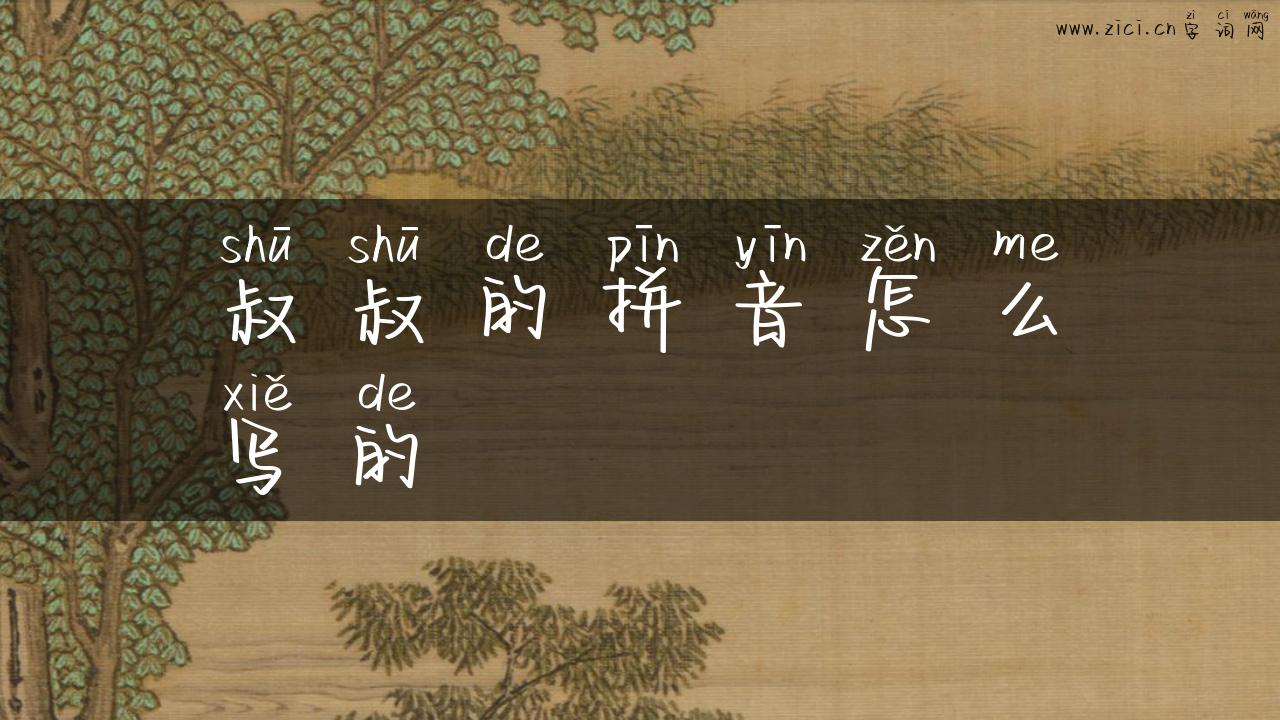 zì cí wǎng
www.zici.cn 字 词 网
shū shū de pīn yīn zěn me
叔 叔 的 拼 音 怎 么
xiě de
写 的